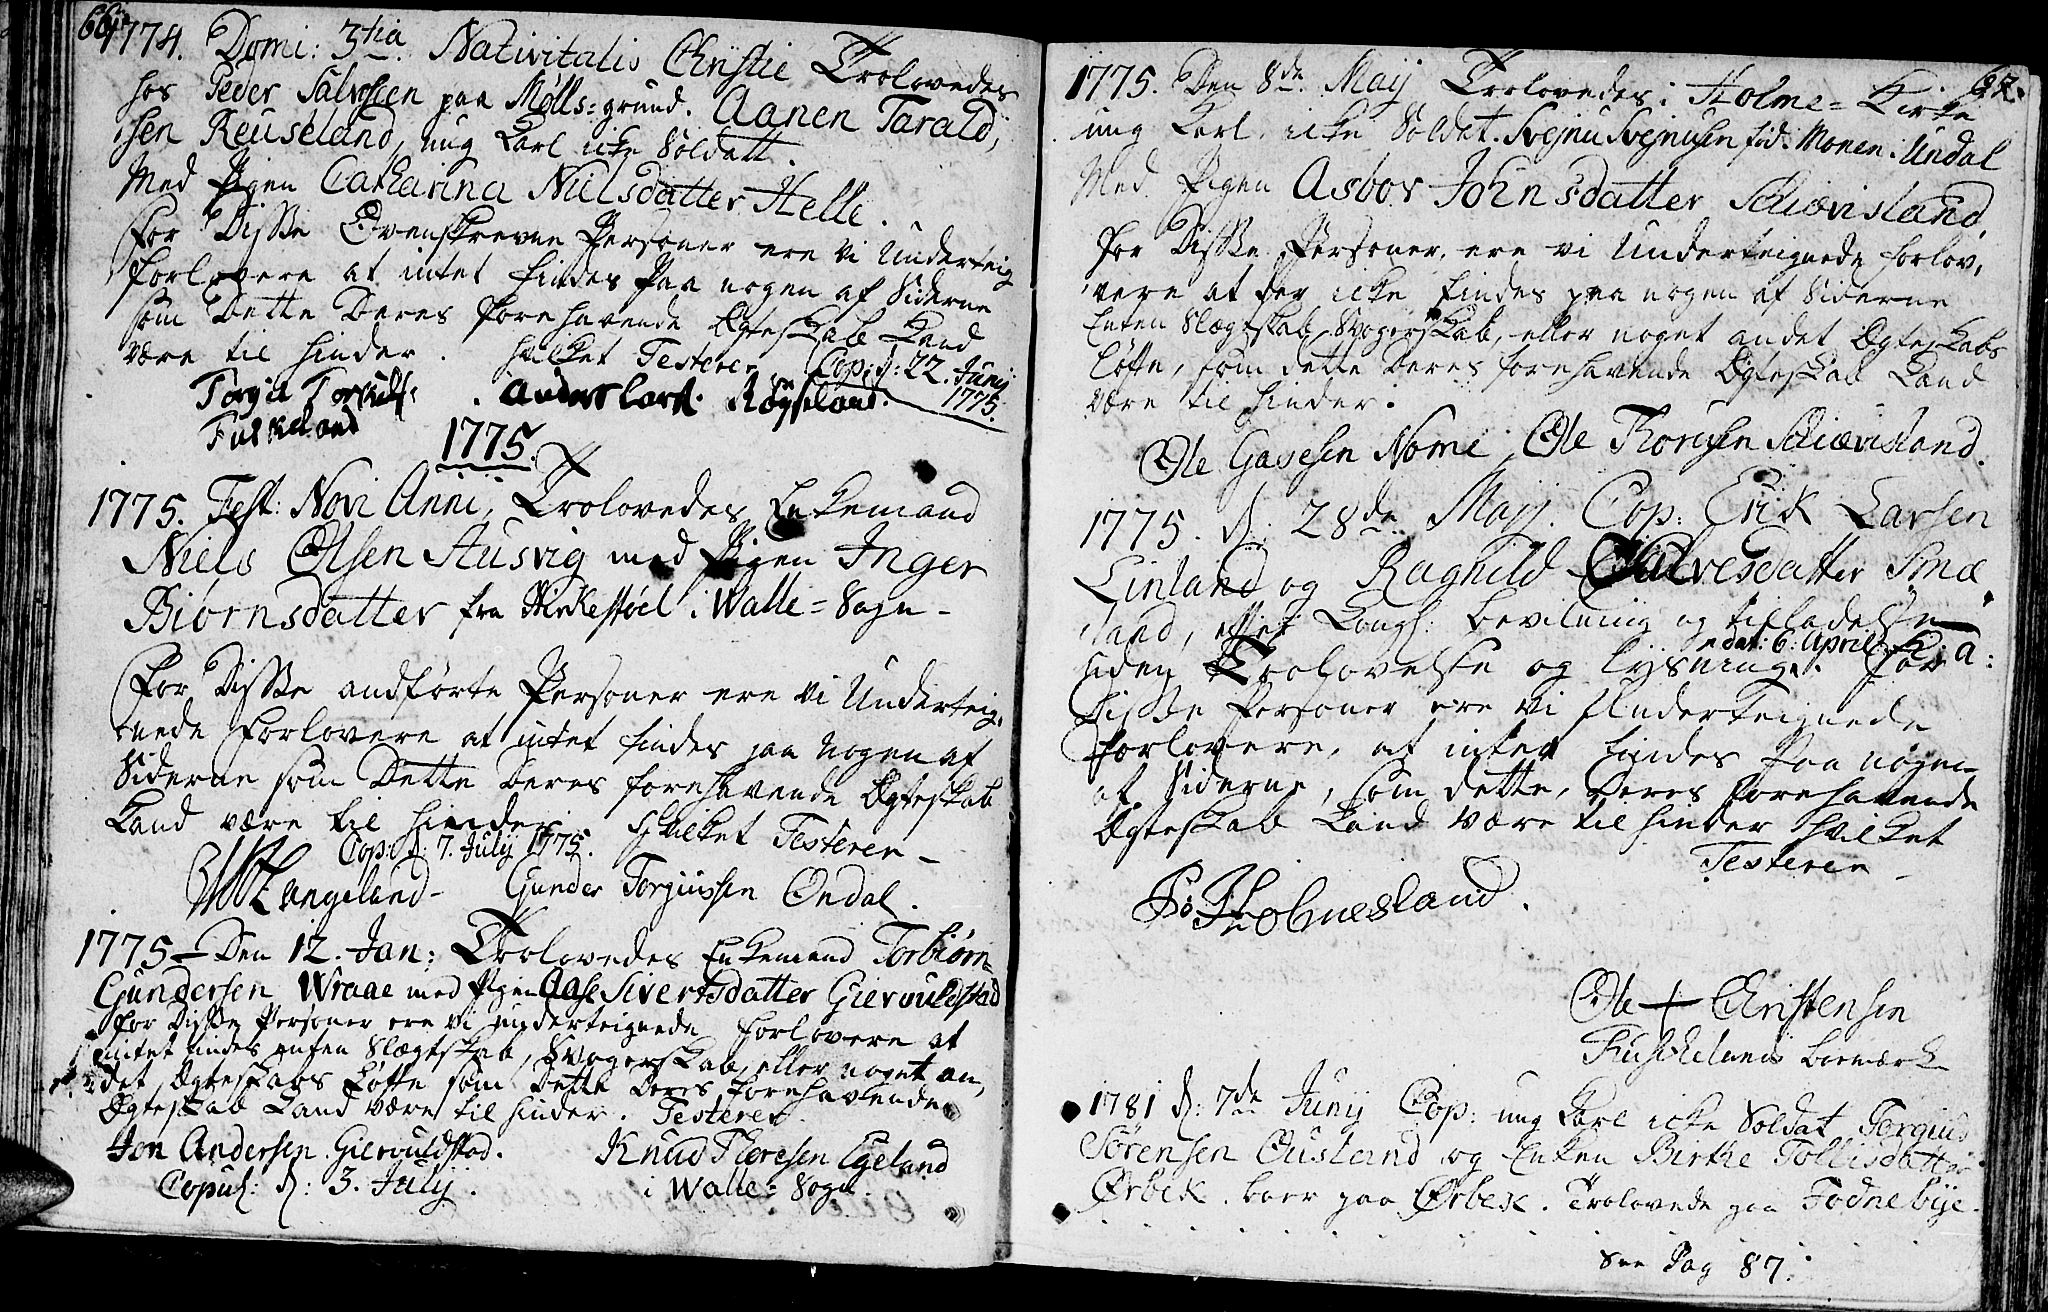 66.
1774. Domi: 3tia Nativitatis Christie Trolovedes
hos Peder Salvesen paa Mølls=grund. Aanen Tarald,
sen Reuseland, ung Karl icke Soldatt.
Med Pigen Catharina Nielsdatter Helle.
For Disse Ovenskrevne Personer ere vi Underteig
forlovere at intet findes Paa nogen af Siderne
som Dette Deres forehavende Ægteskab Kand
være til hinder. hvilket Testerer Cop: d: 22. Junij
1775.
Anders Røgseland.
1775.
1775. Fest: Novi Anni, Trolovedes Enkemand
Niels Olsen Ausvig med Pigen Inger
Biørnsdatter fra Birkestøel i Walle=Sogn-
For Disse andførte Personer ere vi Underteig,
nede forlovere at intet findes paa nogen af
Siderne som Dette Deres forehavende Ægteskab
Kand være til hinder hvilket Testerer-
Cop: d: 7. July 1775.
Langeland- Gunder Torgiussen Øndal.
1775- Den 12. Jan: Trolovedes Enkemand Torbiørn=
Gundersen Wraae med Pigen Aase Sivertsdatter Giervuldstad
For Disse Personer ere vi underteignede forlovere at
intet findes enten Slægtskab, Svogerskab, eller noget an,
det Ægteskabs Løfte som Dette Deres forehavende
Ægteskab Kand være til hinder. Testerer
Jon Andersen Giervuldstad. Knud Thoresen Egeland
Copul: d: 3. Julij. i Walle=Sogn.
67.
1775. Den 8de Maij Trolovedes i Holme=Kirke
ung Karl, icke Soldat. Svejnu Svejnusen fød: Monen i Undal
Med Pigen Asbor Johnsdatter Schiævisland,
For Disse Personer, ere vi Underteignede forlov,
vere at der icke findes paa nogen af Siderne
Enten Slægtskab, Svogerskab, eller noget andet Ægteskabs
Løfte, som dette Deres forehavende Ægteskab Kand
være til hinder.
Ole Gavesen Nome Ole Thoresen Schiævisland.
1775. d: 28de Maij. Cop: Erik Larsen
Linland og Ragnild Salvesdatter Smæ
land, efter Kongl: bevilning og tilladelse
dat: 6: April: h: a:
uden Trolovelse og lysning. For
Disse Personer ere vi Underteignede
forlovere, at intet findes Paa nogen
af Siderne, som dette, Deres forehavende
Ægteskab Kand være til hinder hvilket
Testerer
Holmesland.
Ole + Christensen
boemærk
1781 d: 7de Junij Cop: ung Karl icke Soldat Tergius
Sørensen Ousland og Enken Birthe Tollisdatter
Ørbek. boer paa Ørbek. Trolovede paa Fodnebye.
See Pag 87.